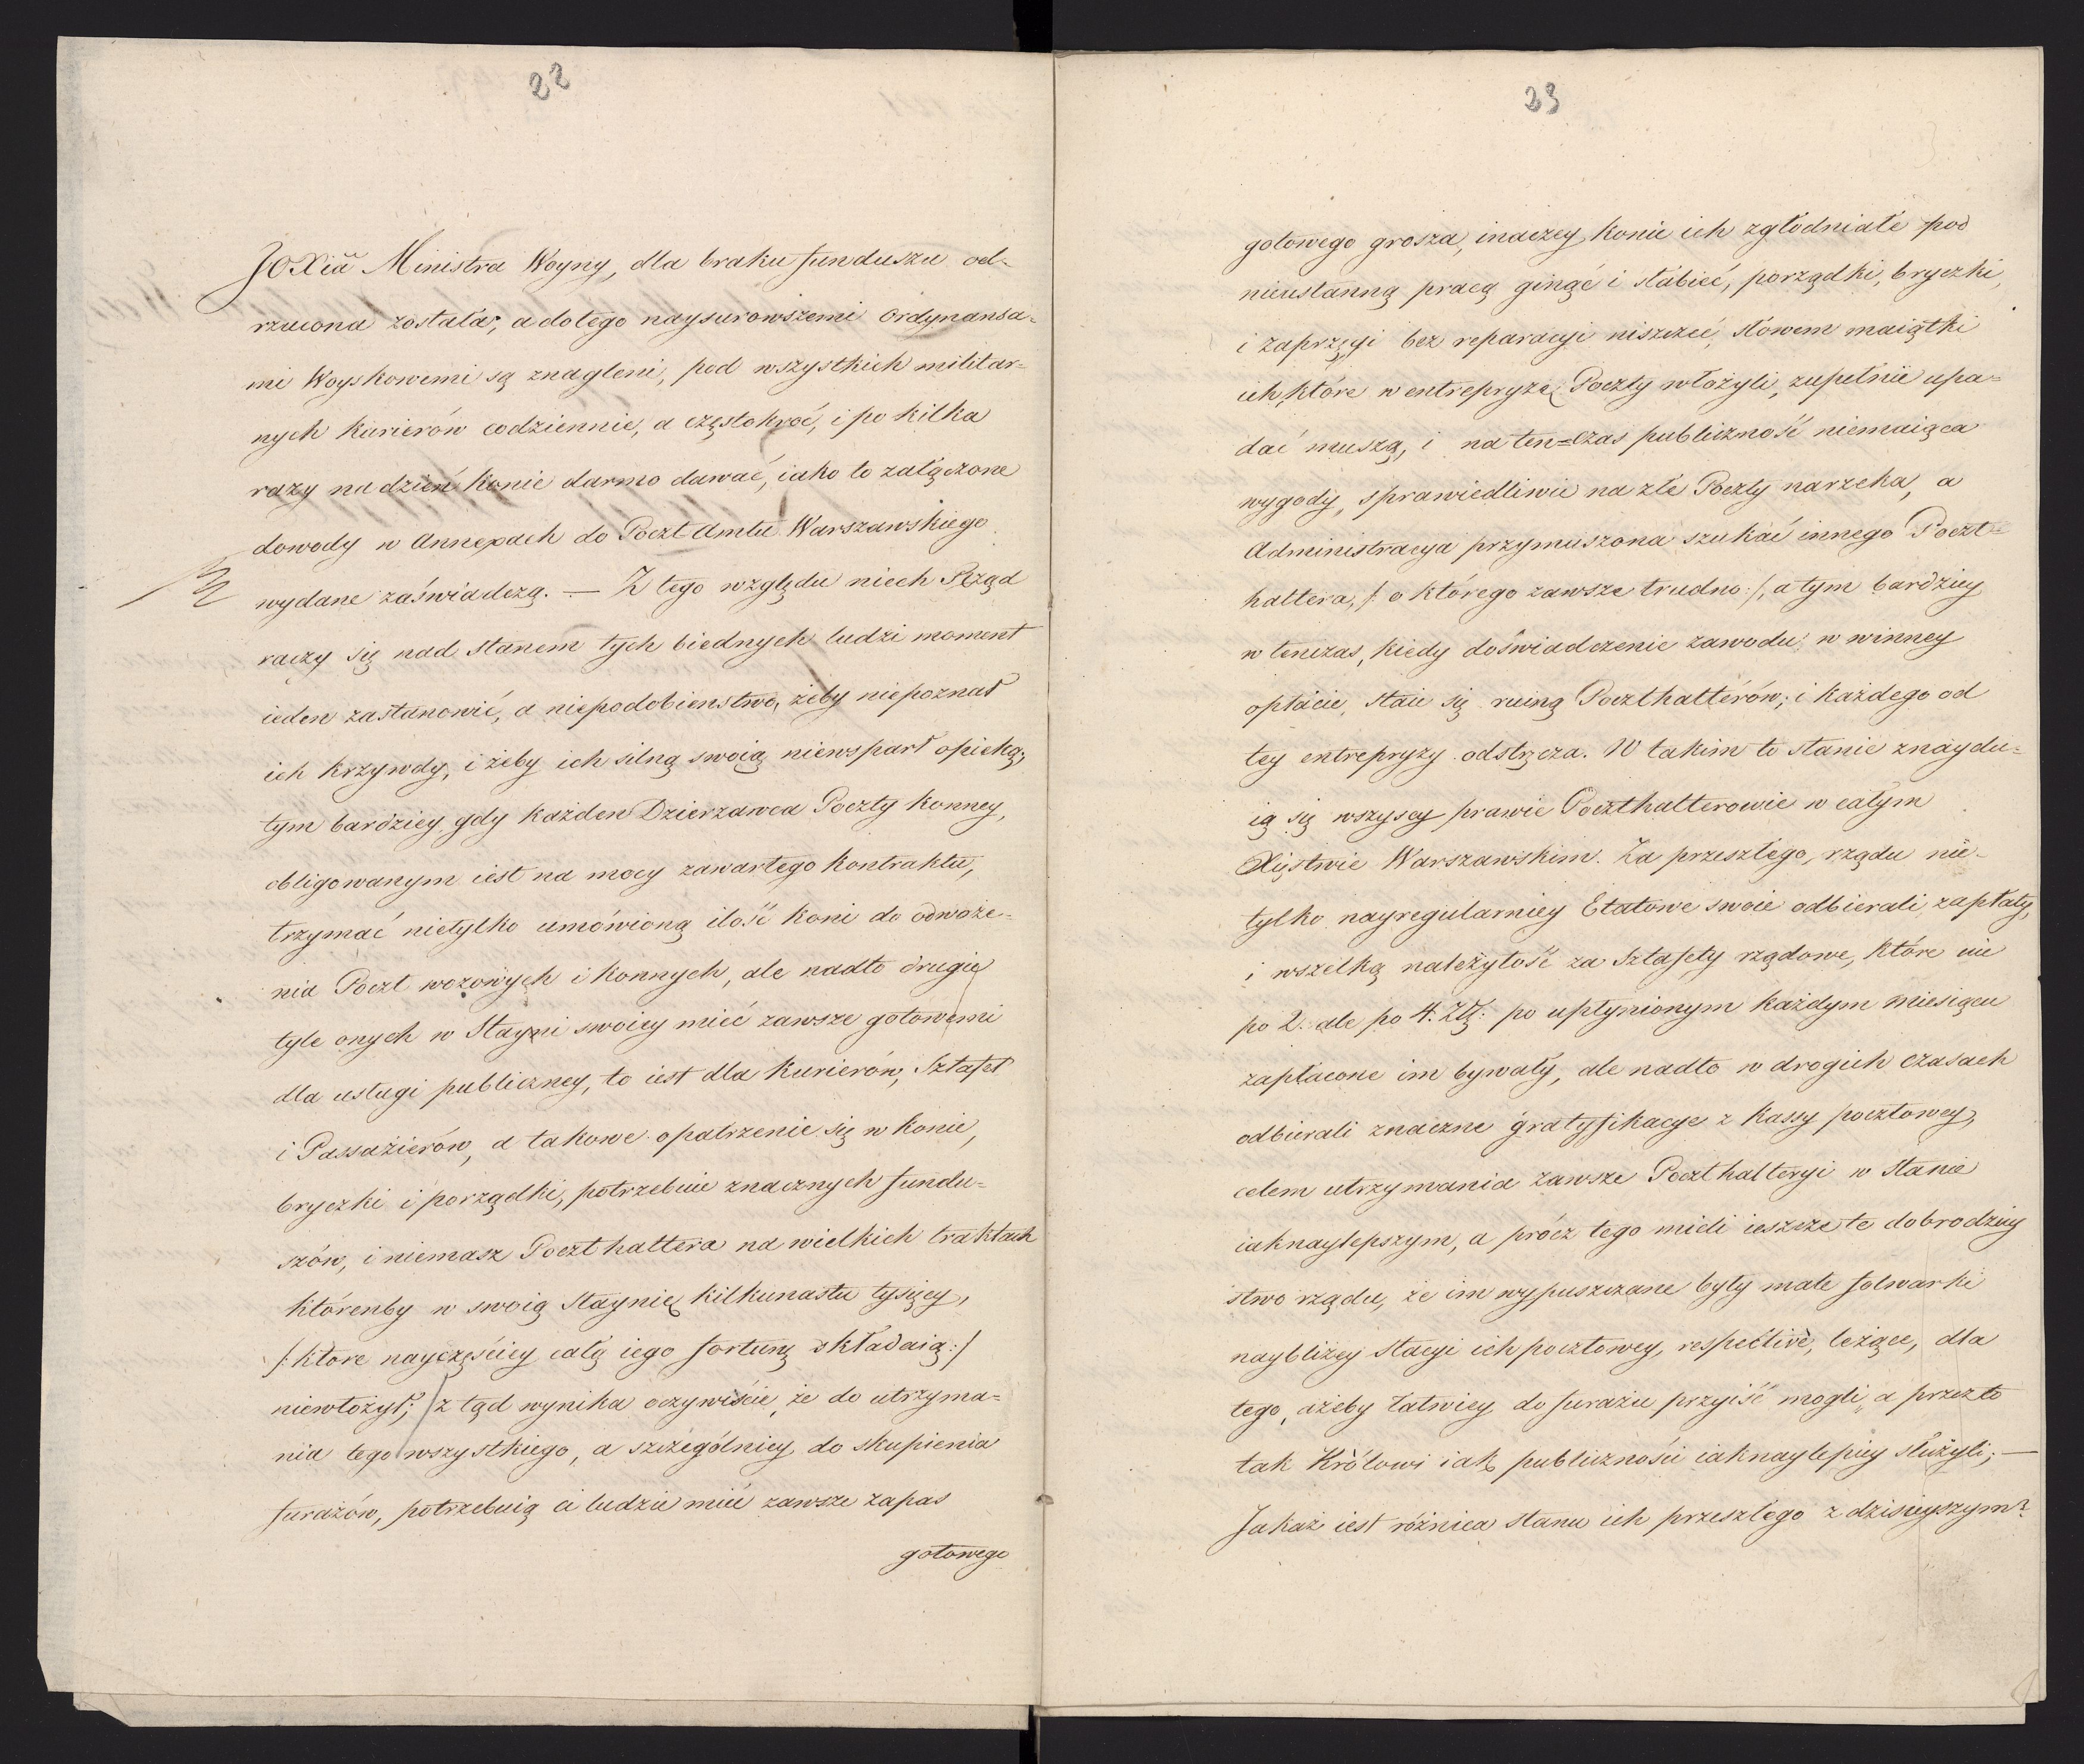 22
JOXią Ministra Woyny, dla braku funduszu od-
rzucona została, a do tego naysurowszemi Ordynansa-
mi Woyskowemi są znagleni, pod wszystkich militar-
nych kurierów codziennie, a częstokroć, i po kilka
razy na dzień konie darmo dawać, iako to załączone
dowody w Annexach do Poczt Amtu Warszawskiego
wydane zaświadczą. — Z tego względu niech Rząd
raczy się nad stanem tych biednych ludzi moment
ieden zastanowić, a niepodobieństwo, żeby niepoznał
ich krzywdy, i żeby ich silną swoią niewsparł opieką;
tym bardziey gdy każden Dzierzawca Poczty konney,
obligowanym iest na mocy zawartego kontraktu,
trzymać nietylko umówioną ilość koni do odwoże-
nia Poczt wozowych i konnych, ale nadto drugie
tyle onych w Stayni swoiey mieć zawsze gotowemi
dla usługi publiczney, to iest dla Kurierów, Sztafet
i Passażierów, a takowe opatrzenie się w konie,
bryczki i porządki, potrzebuie znacznych fundu-
szów, i niemasz Poczthaltera na wielkich traktach
którenby w swoią Staynię kilkunastu tysięcy,
/: ktore nayczęściey całą iego fortunę składaią :/
niewłożył; z tąd wynika oczywiście, że do utrzyma-
nia tego wszystkiego, a szczególniey do skupienia
furażów, potrzebuią ci ludzie mieć zawsze zapas
gotowego
23
gotowego grosza, inaczey konie ich zgłodniałe pod
nieustanną pracą ginąć i słabieć, porządki, bryczki,
i zaprzęgi bez reparacyi niszczeć, słowem maiątki
ich, które w entrepryzę Poczty włożyli, zupełnie upa-
dać muszą, i na ten=czas publiczność niemaiąca
wygody, sprawiedliwie na złe Poczty narzeka, a
Administracya przymuszona szukać innego Poczt-
haltera, /: o którego zawsze trudno :/, a tym bardziey
w tenczas, kiedy doświadczenie zawodu w winney
opłacie, staie się ruiną Poczthalterów; i każdego od
tey entrepryzy odstręcza. W takim to stanie znaydu-
ią się wszyscy prawie Poczthalterowie w całym
Xięstwie Warszawskim. Za przeszłego, rządu nie-
tylko nayregularniey Etatowe swoie odbierali zapłaty,
i wszelką należytość za Sztafety rządowe, które nie
po 2. ale po 4. Zł: po upłynionym każdym miesiącu
zapłacone im bywały, ale nadto w drogich czasach
odbierali znaczne gratyfikacye z kassy pocztowey,
celem utrzymania zawsze Poczthalteryi w stanie
iaknaylepszym, a prócz tego mieli ieszcze te dobrodziey
stwo rządu, że im wypuszczane były małe folwarki
naybliżey Stacyi ich pocztowey, respective, leżące, dla
tego, ażeby łatwiey do furażu przyiść mogli, a przez to
tak Królowi iak publiczności iaknaylepiey służyli; —
Jakaż iest różnica stanu ich przeszłego z dzisieyszym?